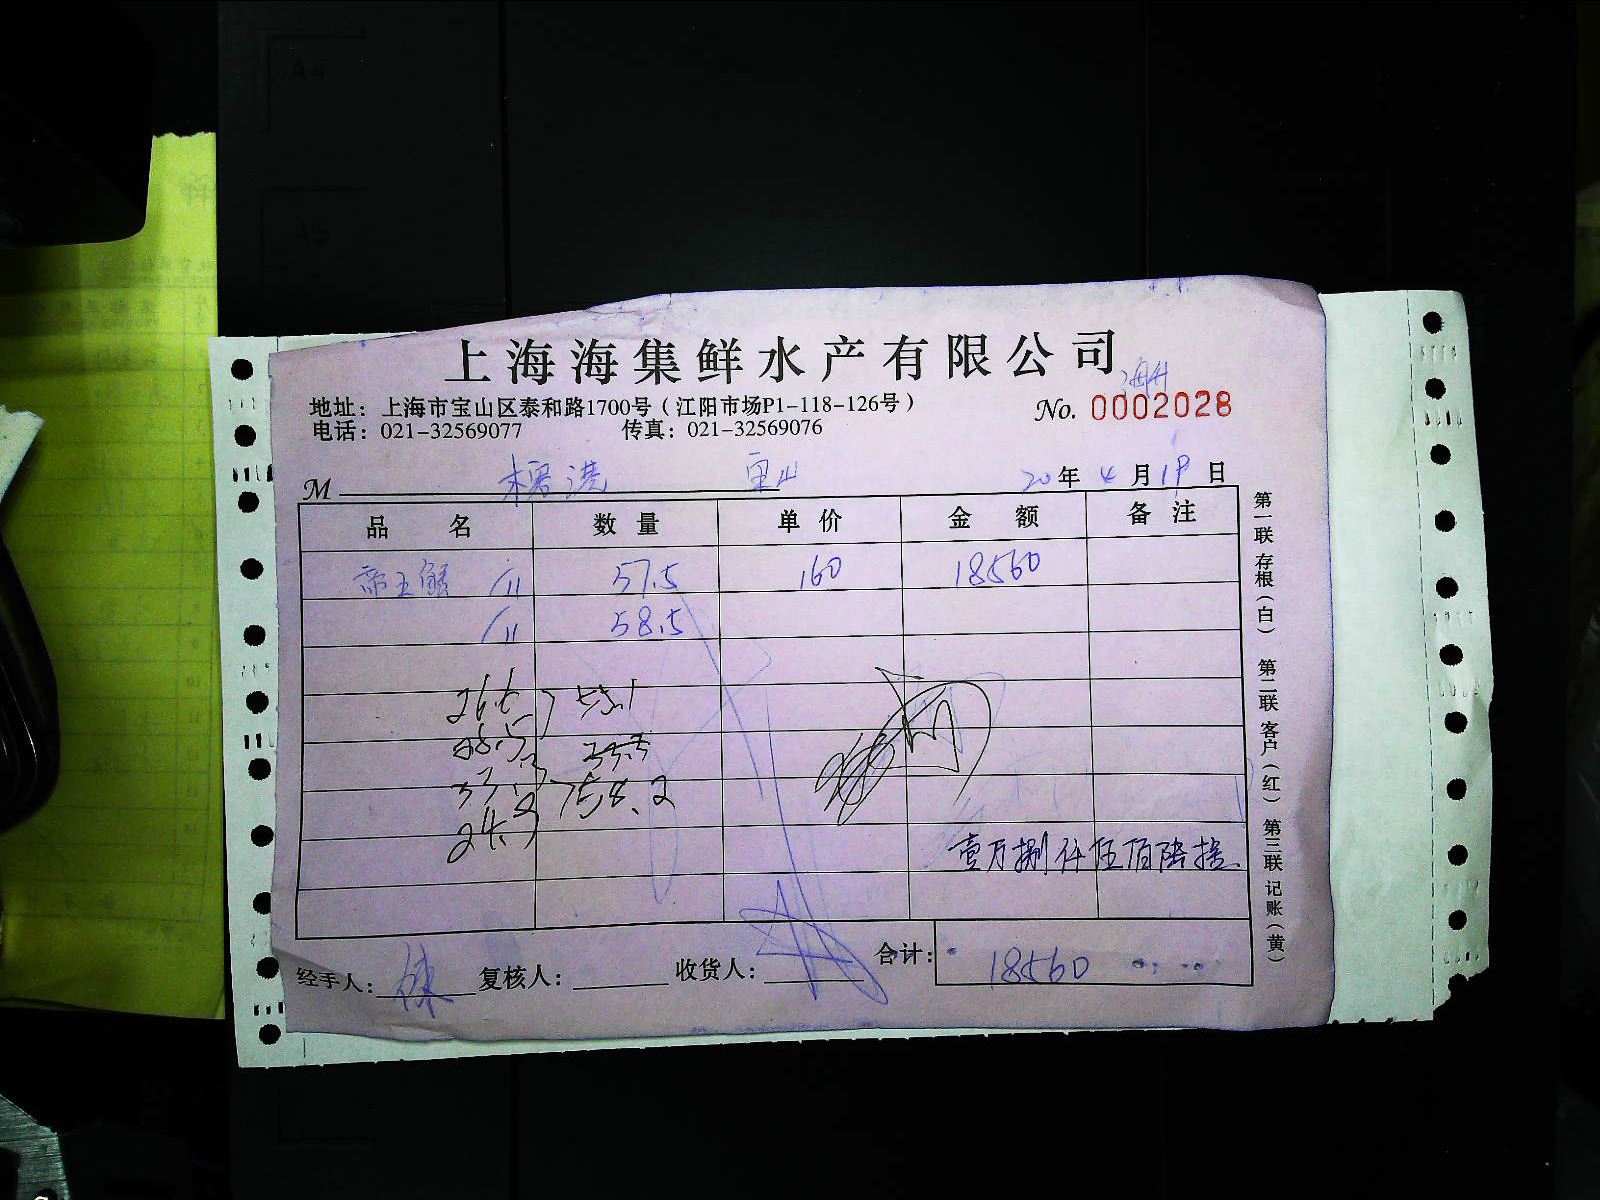 上海海集鲜水产有限公司
地址：上海市宝山区泰和路1700号（江阳市场P1-118-126号）
No. 0002028
电话：021-32569077 传真：021-32569076
M 宝山 20年4月19日
品名 数量 单价 金额 备注
帝王蟹 57.5 160 18560
58.5
53.1
58.2
壹万捌仟伍佰陆拾
经手人： 复核人： 收货人： 合计：18560
第一联 存根（白） 第二联 客户（红） 第三联 记账（黄）